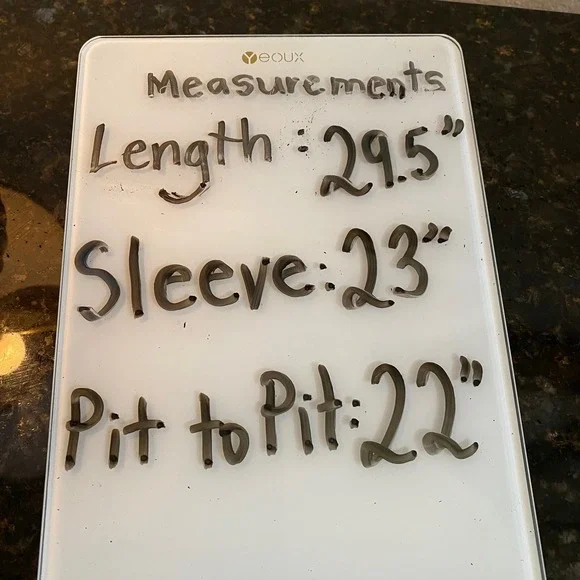 Yeoux
Measurements
Length: 29.5"
Sleeve: 23"
Pit to Pit: 22"